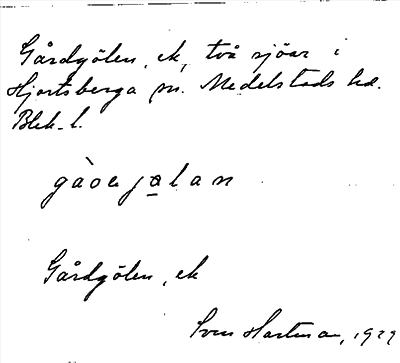 Gårdgölen, ek, två sjöar i
Hjortsberga sn. Medelstads hd.
Blek. l.
Gårdgölen, ek
Sven Hartman, 1929